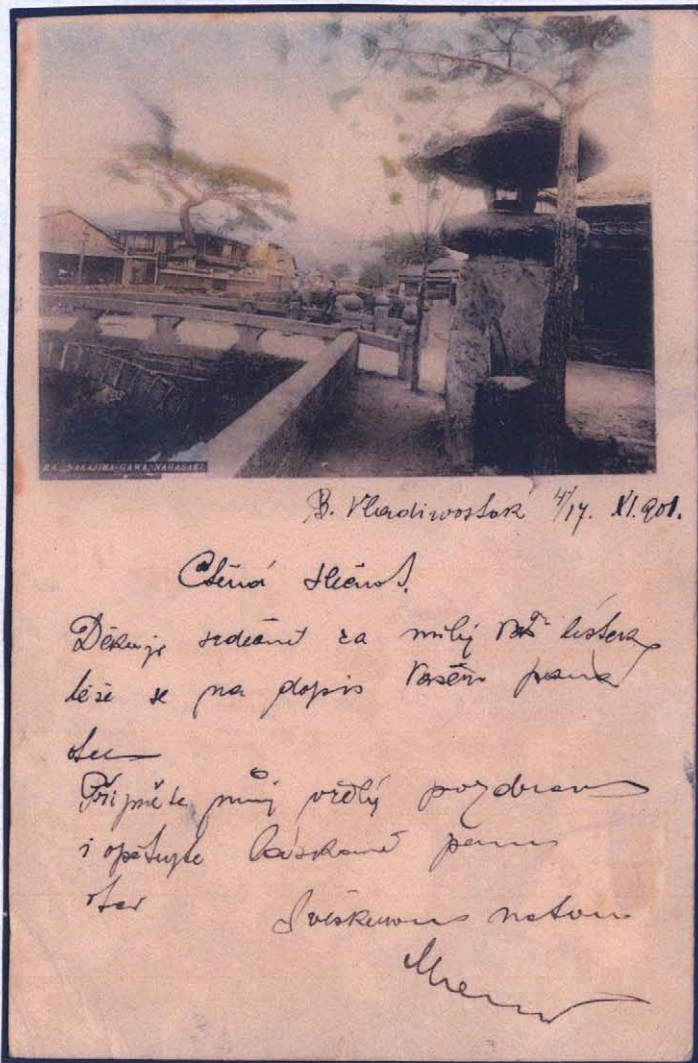 NAKAJIMA-GAWA, NAGASAKI.
B. Vladiwostok 4/17. XI. 901.
Ctěná slečno!
Děkuji srdečně za milý Váš lístek
těše se na dopis Vašeho pana
Přijměte můj vřelý pozdrav
i opětujte laskavě panu